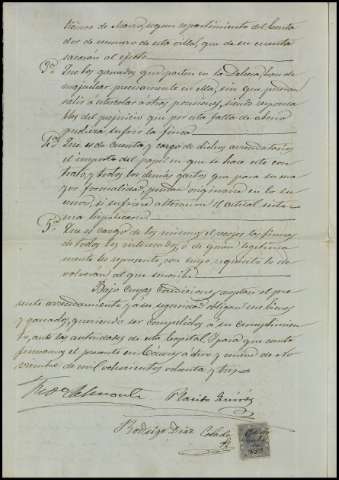 tienso de Marzo, segun repartimiento del Conta
dor de número de esta villa, que de su cuenta
sacarán al efecto
3ª Que los ganados que pasten en la Dehesa, han de
majadear precisamente en ella, sin que puedan
salir á otras posesiones, siendo responsa
bles del perjuicio que por esta falta de abono
pudiera sufrir la finca
4ª Que es de cuenta y cargo de dichos arrendatarios
el importe del papel en que se hace este con
trato, y todos los demás gastos que para su ma
yor formalidad puedan originarse en lo su
cesivo, si sufriera alteracion el actual siste
ma hipotecario
5ª Que es cargo de los mismos el recoger las firmas
de todos los interesados, ó de quien legitima
mente los represente, sin cuyo requisito se de
volverán al que suscribe
Bajo cuyas condiciones aceptan el pre
sente arrendamiento, y á su seguridad obligan sus bienes
y ganado, queriendo ser compelidos á su cumplimien
to, ante las autoridades de esta Capital. Y para que conste
firmamos el presente en Cáceres á diez y nueve de No
viembre de mil ochocientos ochenta y tres
Rodrigo Diaz